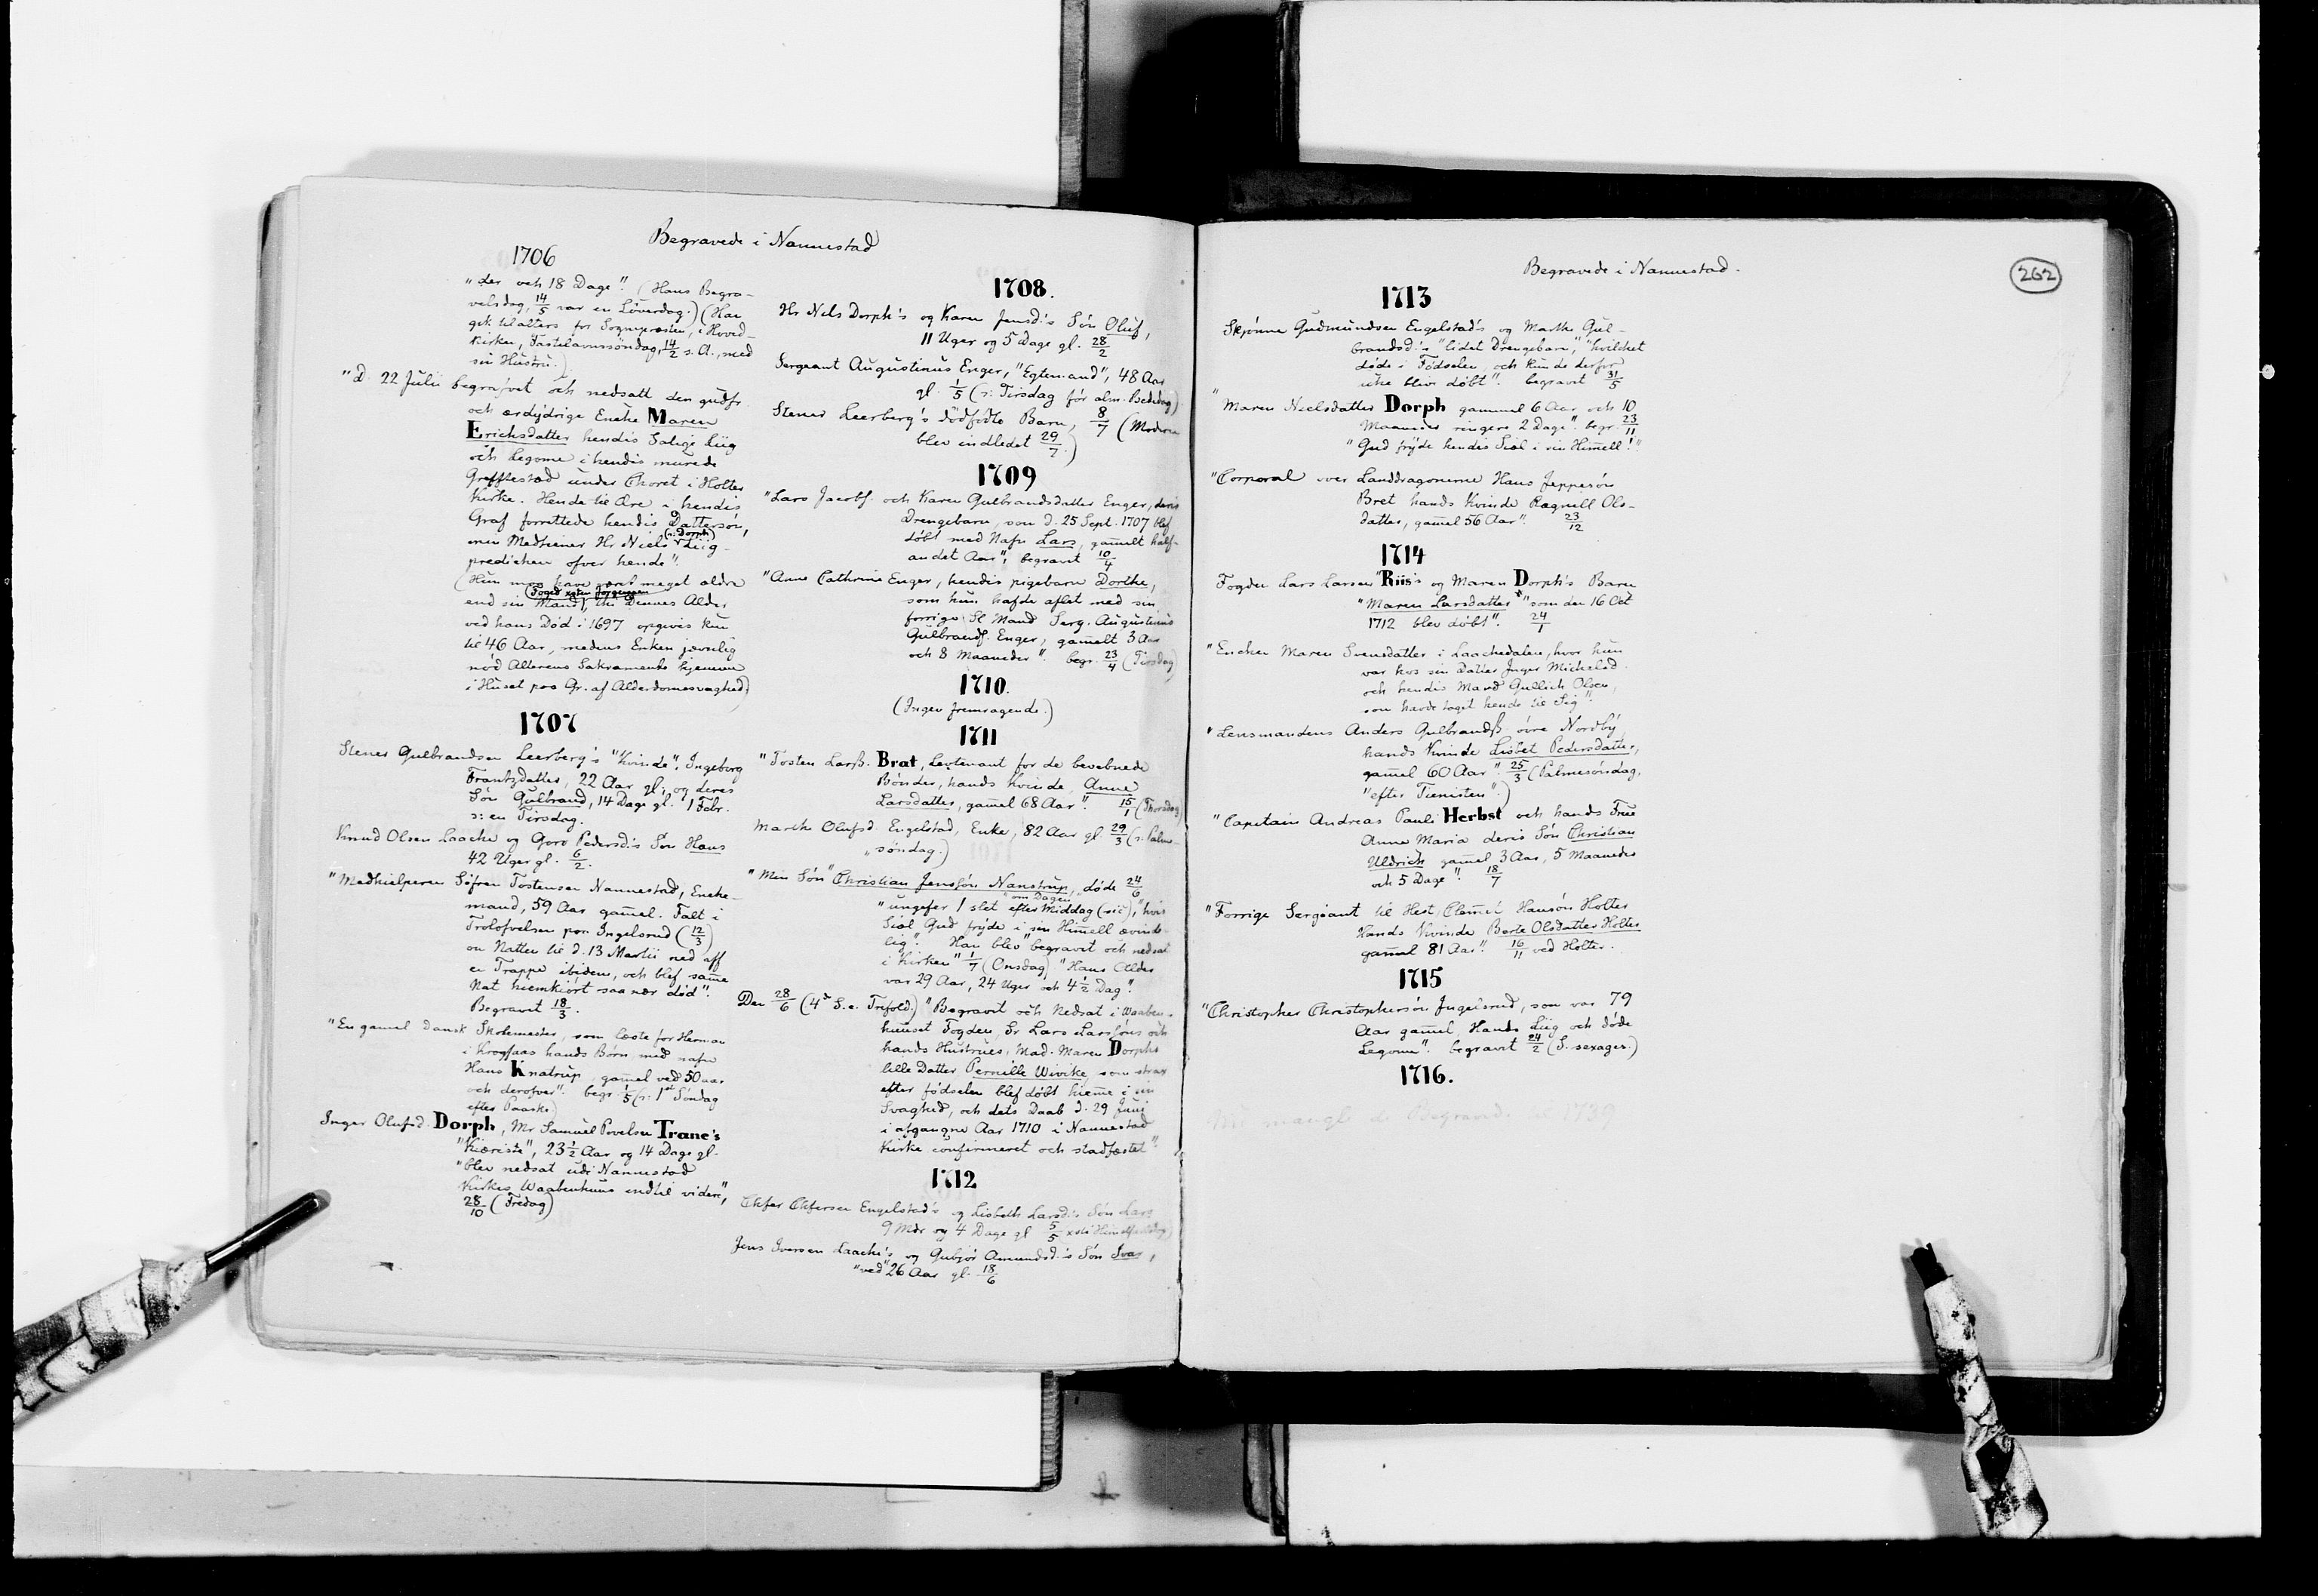 Begravede i Nannestad
1706
"der och 18 Dage". (Hans Begra-
velsdag, 14/5 var en Löverdag.) (Han
gik til alters for Sognepræsten, i Hoved-
kirken, Fastelavnssöndag, 14/2 s. A., med
sin Hustru.)
"D. 22 Julii begrafvet och nedsatt den gudfr.
och ærdydrige Encke Maren
Erichsdatter hendis Salige Liig
och Legome i hendis murede
Grafflested under Choret i Holter
Kirke. Hende til Ære i hendis
Graf forrettede hendis Dattersön,
min Medtiener Hr Niels (ɔ: Dorph) Liig-
predicken ofver hende".
(Hun maa have været meget ældre
end sin Mand (Foged xsten Jörgensen), thi Dennes Alder
ved hans Död i 1697 opgives kun
til 46 Aar, medens Enken jævnlig
nöd Alterens Sakramente hjemme
i Huset paa Gr. af Alderdomssvaghed)
1707
Stener Gulbrandsen Leerberg's "Kvinde", Ingeborg
Frantzdatter, 22 Aar gl., og deres
Sön Gulbrand, 14 Dage gl. 1 Febr.
ɔ: en Tirsdag.
Knud Olsen Laache og Goro Pedersd:s Sön Hans
42 Uger gl. 6/2.
"Medhielperen Söfren Tostensen Nannestad, Encke-
mand, 59 Aar gam̄el. Falt i
Trolofvelsen paa Ingelsrud (12/3)
om Natten til d. 13 Martii ned aff
en Trappe ibidem, och blef sam̄e
Nat hiemkiört saa nær död".
Begravit 18/3.
"En gamel Dansk Skolemester, som læste for Herman
i Krogsaas hands Börn, med nafn
Hans Knatrup, gam̄el ved 50 aar
och derofver". begr. 1/5 (ɔ: 1st Söndag
efter Paaske)
Inger Olufsd. Dorph, Mr Samuel Povelsen Trane's
"Kiæriste", 23 1/2 Aar og 14 Dage gl.
"blev nedsat udi Nannestad
Kirkes Waabenhuus indtil videre",
28/10 (Fredag)
1708.
Hr Niels Dorph's og Karen Jensd:s Sön Oluf,
11 Uger og 5 Dage gl. 28/2
Sergeant Augustinus Enger, "Egtemand", 48 Aar
gl. 1/5 (ɔ: Tirsdag för alm. Bededag)
Stener Leerberg's dödfödte Barn, 8/7 (Moderen
blev indledet 29/7.)
1709
"Lars Jacobs. och Karen Gulbrandsdatter Enger, deris
Drengebarn, som d. 25 Sept. 1707 blef
döbt med Nafn Lars, gamelt half-
andet Aar", begravet 10/4
"Anne Cathrine Enger, hendis pigebarn Dorthe,
som hun hafde aflet med sin
forrige Sl Mand Serg. Augustinus
Gulbrands. Enger, gamelt 3 Aar
och 8 Maaneder". begr. 23/4 (Tirsdag)
1710.
(Ingen fremragende.)
1711
"Tosten Larss. Brat, Leutenant for de bevæbnede
Bönder, hands Kvinde, Anne
Larsdatter, gam̄el 68 Aar". 15/1 (Thorsdag)
Marthe Olufsd. Engelstad, Enke, 82 Aar gl. 29/3 (ɔ: Palme-
söndag.)
"Min Sön" Christian Jenssön Nanstrup, döde 24/6
"ungefer 1 slet "om Dagen" efter Middag (sic), "hvis
Siæl Gud fryde i sin Him̄ell ævind-
lig". Han blev "begravit och nedsat
i Kirken" 1/7 (Onsdag) "Hans Alder
var 29 Aar, 24 Uger och 4 1/2 Dag".
Den 28/6 (4de S. e. Trefold.) "Begravit och Nedsat i Waaben-
huuset Fogden, Sr Lars Larssöns och
hands Hustrues, Mad. Maren Dorphs
lille Datter Pernille Wivike, som strax
efter födselen blef döbt hiem̄e i sin
Svaghed, och dets Daab d. 29 Junij
i afgangne Aar 1710 i Nannestad
Kirke confirmeret och stadfæstet".
1712
Elisabeth Larsd:s Sön Lars
9 Mdr og 4 Dage gl 5/5
Jens Iversen Laache's og Gubjör Amundsd:s Sön Ivar,
"ved" 26 Aar gl. 18/6
Begravede i Nannestad.
262
1713
Skjönne Gudmundsen Engelstad's og Marthe Gul-
brandsd:s "lidet Drengebarn", "hvilchet
döde i Födselen, och kunde derfor
icke blive döbt". begravit 31/5
"Maren Nielsdatter Dorph gammel 6 Aar och 10
Maaneder ringere 2 Dage". begr. 23/11
"Gud fryde hendis Siæl i sin Him̄ell!"
"Corporal over Landdragonerne Hans Jeppesön
Bret hands Kvinde Ragnell Ols-
datter, gam̄el 56 Aar". 23/12
1714
Fogden Lars Larsen Riis's og Maren Dorph's Barn
"Maren Larsdatter" "som den 16 Oct
1712 blev döbt". 24/1
"Encken Maren Svensdatter i Laachedalen, hvor hun
var hos sin Datter Inger Michelsd.
och hendis Mand Gullich Olsen,
som havde taget hende til Sig".
"Lensmandens Anders Gulbrandsß övre Nordby
hands Kvinde Lisbet Pedersdatter,
gam̄el 60 Aar". 25/3 (Palmesöndag,
"efter Tienisten".)
"Capitain Andreas Pauli Herbst och hands Frue
Anne Maria deris Sön Christian
Uldrich gam̄el 3 Aar, 5 Maaneder
och 5 Dage". 18/7
"Forrige Sergiant til Hest, Clem̄et Hansön Holter
Hands Kvinde Berte Olsdatter Holter
gam̄el 81 Aar". 16/11 ved Holter.
1715
"Christopher Christophersön Ingelsrud, som var 79
Aar gam̄el, Hands Liig och döde
Legome". begravit 24/2 (S. sexages.)
1716.
mangl de Begravede til 1739